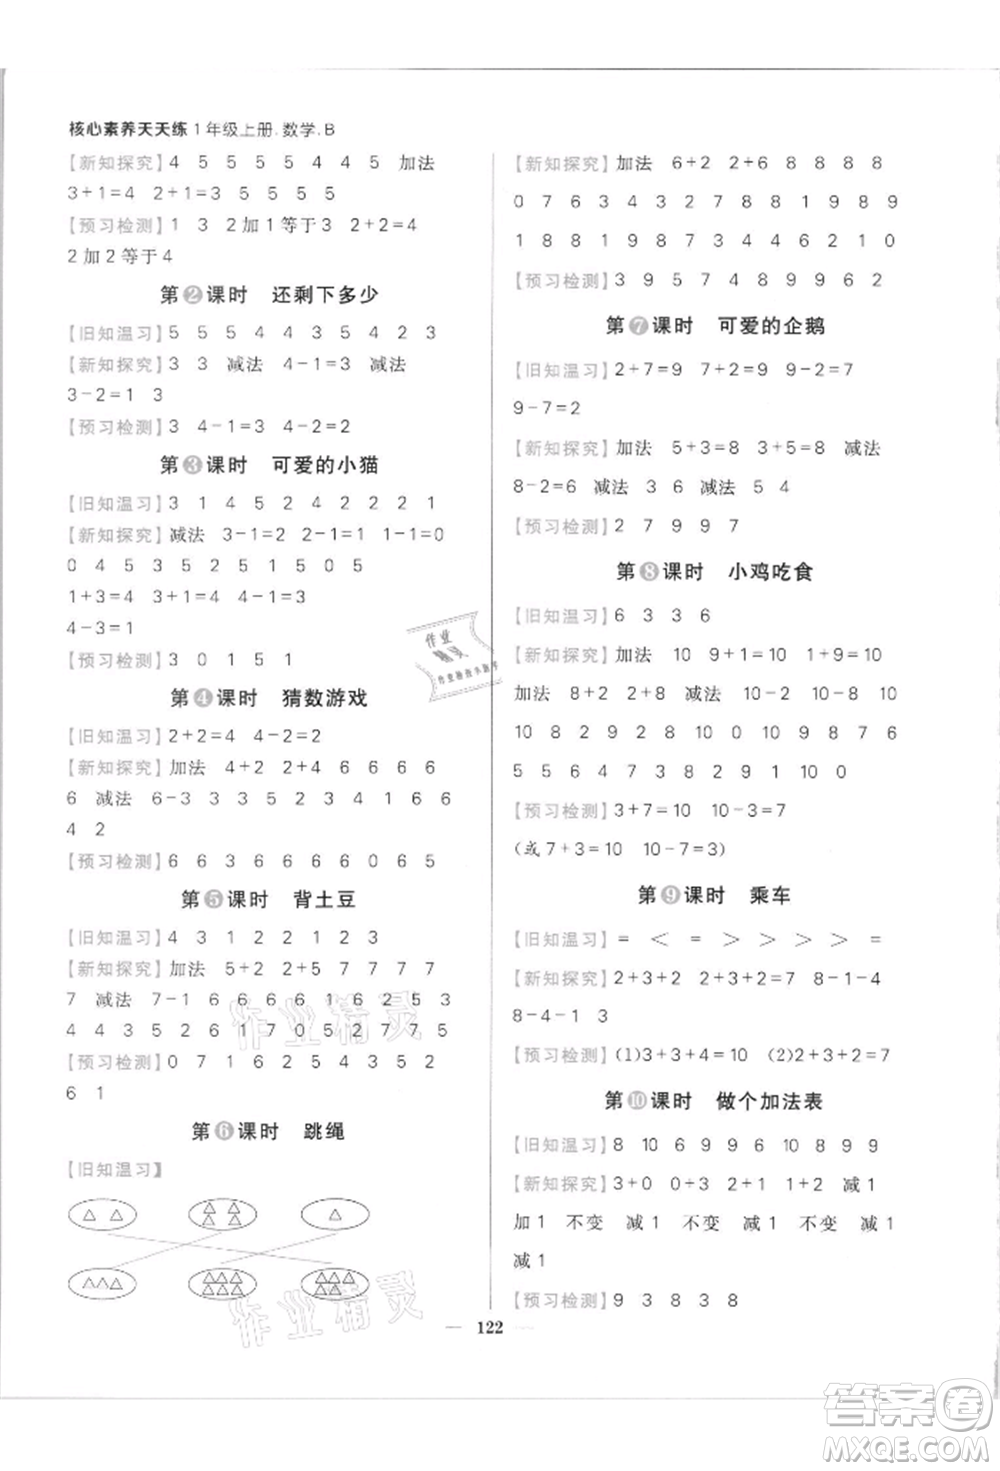 核心素养天天练 1 年级上册.数学.B
【新知探究】4 5 5 5 5 4 4 5 加法
3+1=4 2+1=3 5 5 5 5
【预习检测】1 3 2加1等于3 2+2=4
2加2等于4
第2课时 还剩下多少
【旧知温习】5 5 5 4 4 3 5 4 2 3
【新知探究】3 3 减法 4-1=3 减法
3-2=1 3
【预习检测】3 4-1=3 4-2=2
第3课时 可爱的小猫
【旧知温习】3 1 4 5 2 4 2 2 2 1
【新知探究】减法 3-1=2 1-1=0
0 4 5 3 5 2 5 1 5 0 5
1+3=4 3+1=4 4-1=3
4-3=1
【预习检测】3 0 1 5 1
第4课时 猜数游戏
【旧知温习】2+2=4 4-2=2
【新知探究】加法 4+2 2+4 6 6 6 6
6 减法 6-3 3 3 5 2 4 5 1 6 6
4 2
【预习检测】6 6 3 6 6 6 6 0 6 5
第5课时 背土豆
【旧知温习】4 3 1 2 2 1 2 3
【新知探究】加法 5+2 2+5 7 7 7 7
7 减法 7-1 6 6 6 6 2 5 2 5 3
4 4 3 5 2 6 1 7 0 5 2 5 7
【预习检测】0 7 1 6 2 5 4 3 5 2
6 1
第6课时 跳绳
【旧知温习】
【新知探究】加法 6+2 2+6 8 8 8 8
0 7 6 3 4 3 5 2 7 1 8 9 8 9
1 8 8 1 9 8 7 3 6 4 6 2 1 0
【预习检测】3 9 5 7 4 8 9 7
第7课时 可爱的企鹅
【旧知温习】2+7=9 7+2=9 9-2=7
9-7=2
【新知探究】加法 5+3=8 3+5=8 减法
8-2=6 减法 3 6 减法 5 4
【预习检测】2 7 9 9 7
第8课时 小鸡吃食
【旧知温习】6 3 3 6
【新知探究】加法 10 9+1=10 10
加法 8+2 2+8 10-2 10-8 10
10 8 2 9 2 8 10 10 9 8 7 6
5 5 6 4 7 3 8 2 9 1 10 0
【预习检测】3+7=10 10-3=7
(或7+3=10 10-7=3)
第9课时 乘车
【旧知温习】= < = > > > > =
【新知探究】2+3+2 2+3+2=7 8-1-4
8-4-1 3
【预习检测】(1)3+3+4=10 (2)2+3+2=7
第10课时 做个加法表
【旧知温习】8 10 6 9 9 6 10 8 9 9
【新知探究】3+0 0+3 2+1 1+2 减1
加1 不变 减1 不变 减1 不变 减1
减1
【预习检测】9 3 8 3 8
122
作业
精灵
作业精灵
作业精灵
答案圈
MXQE.COM